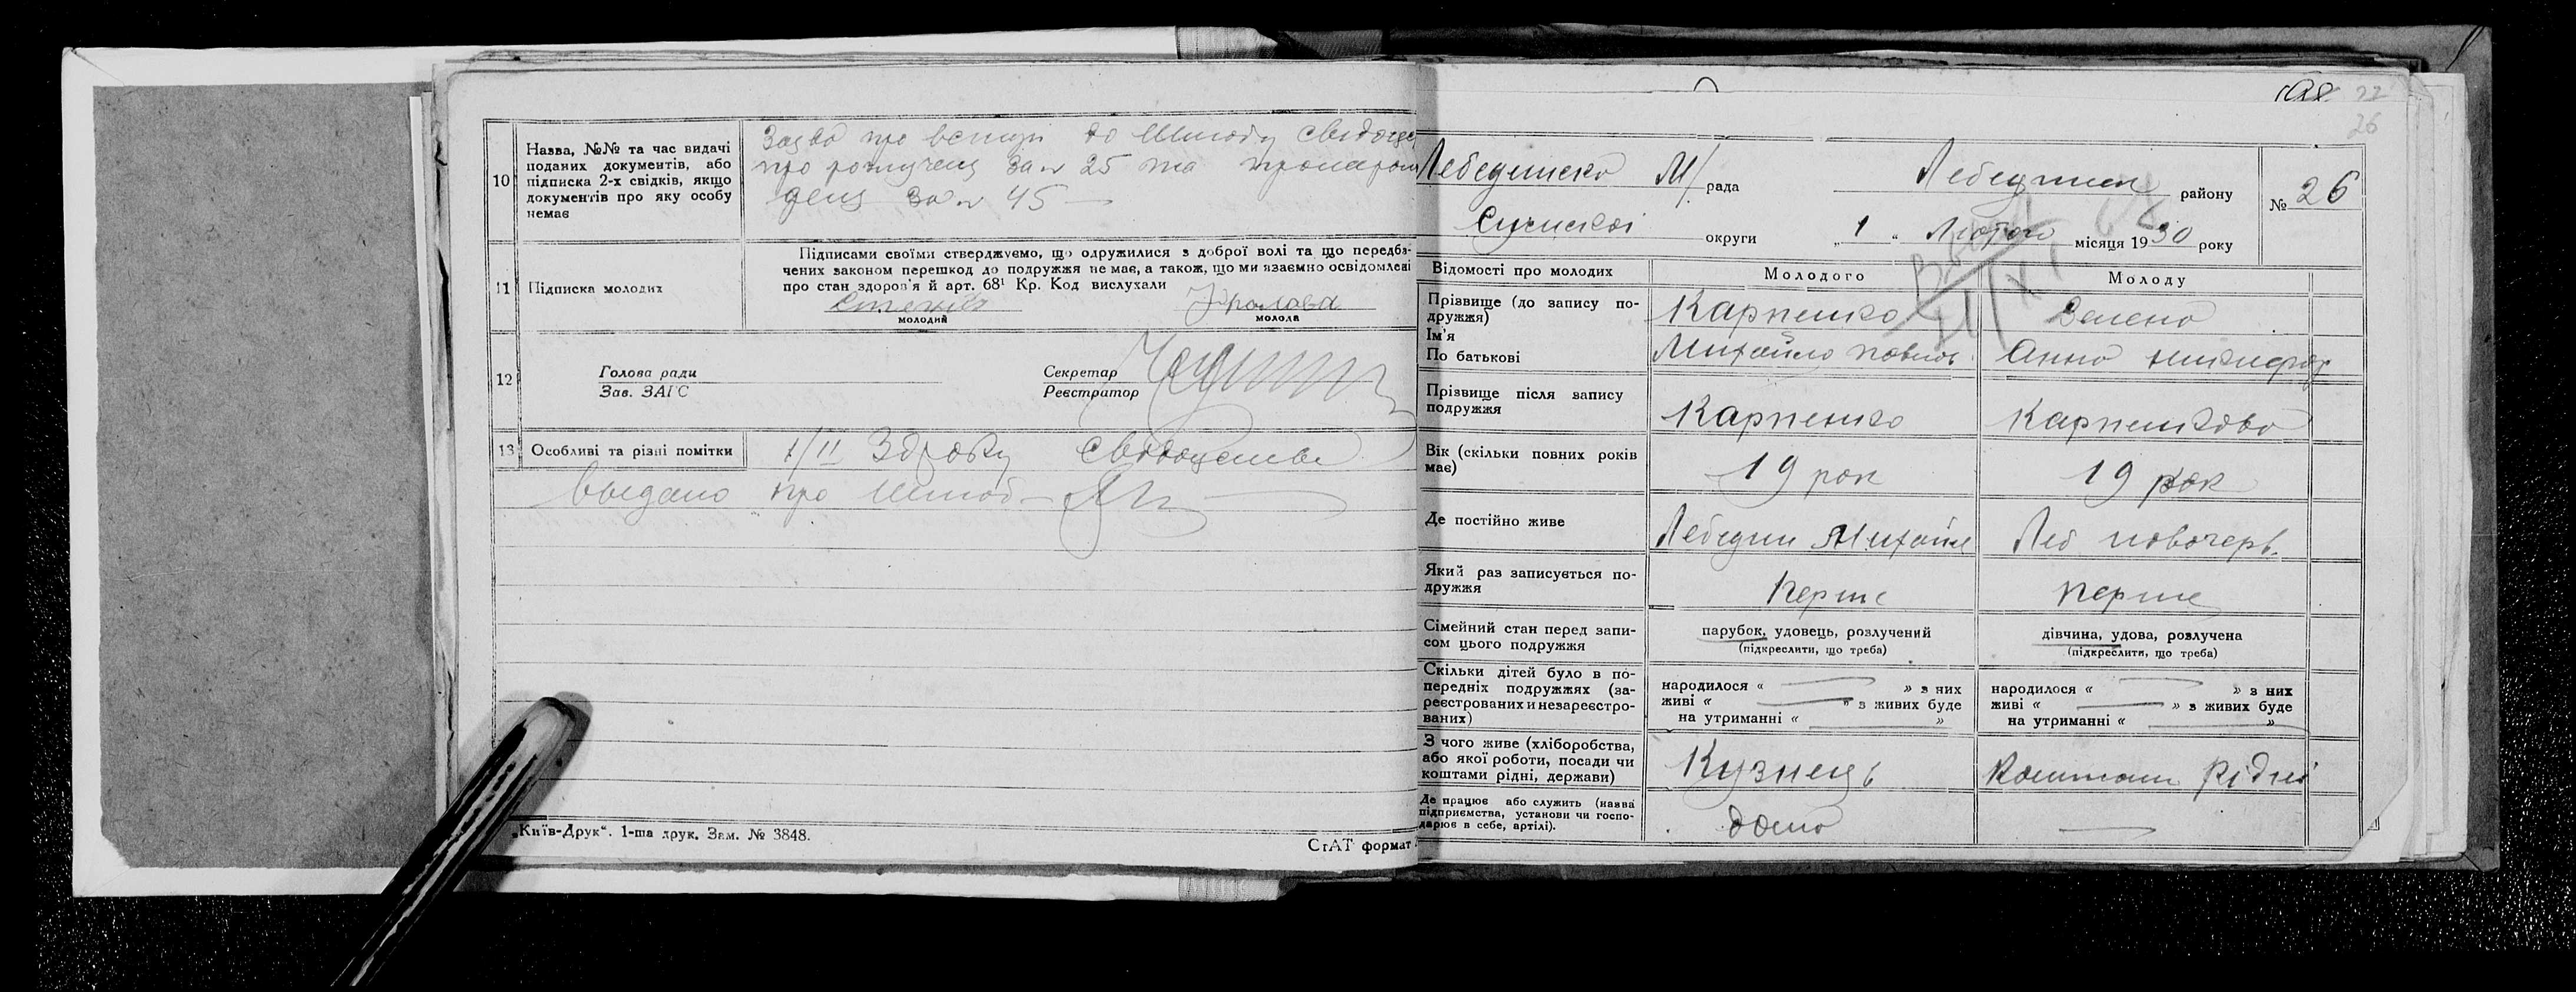 10
Назва, №№ та час видачі
поданих документів, або
підписка 2-х свідків, якщо
документів про яку особу
немає
про вступ до шлюбу
про за № 25 та
за № 45 —
11 Підписка молодих
Підписами своїми стверджуємо, що одружилися з доброї волі та що передба-
чених законом перешкод до подружжя не має, а також, що ми взаємно освідомлені
про стан здоров'я й арт. 68¹ Кр. Код вислухали
молодий
молода
12
Голова ради
Зав. ЗАГС
Секретар
Реєстратор
13 Особливі та різні помітки
1/II
видано про шлюб
„Київ-Друк“. 1-ша друк. Зам. № 3848.
СтАТ формат
22
26
М/ рада
району
№ 26
округи
„ 1 “ Лютого місяця 1930 року
Відомості про молодих
Молодого
Молоду
Прізвище (до запису по-
дружжя)
Ім'я
По батькові
Карпенко
Михайло Павлов
Зелено
Анно Никифор
Прізвище після запису
подружжя
Карпенко
Карпенково
Вік (скільки повних років
має)
19 рок
19 рок
Де постійно живе
Лебедин
Леб новочерв.
Який раз записується по-
дружжя
Перше
перше
Сімейний стан перед запи-
сом цього подружжя
парубок, удовець, розлучений
(підкреслити, що треба)
дівчина, удова, розлучена
(підкреслити, що треба)
Скільки дітей було в по-
передніх подружжях (за-
реєстрованих и незареєстро-
ваних)
народилося « — » з них
живі « — » з живих буде
на утриманні « — »
народилося « — » з них
живі « — » з живих буде
на утриманні « — »
З чого живе (хліборобства,
або якої роботи, посади чи
коштами рідні, держави)
Кузнець
Коштами рідні
Де працює або служить (назва
підприємства, установи чи госпо-
дарює в себе, артілі).
дома
—